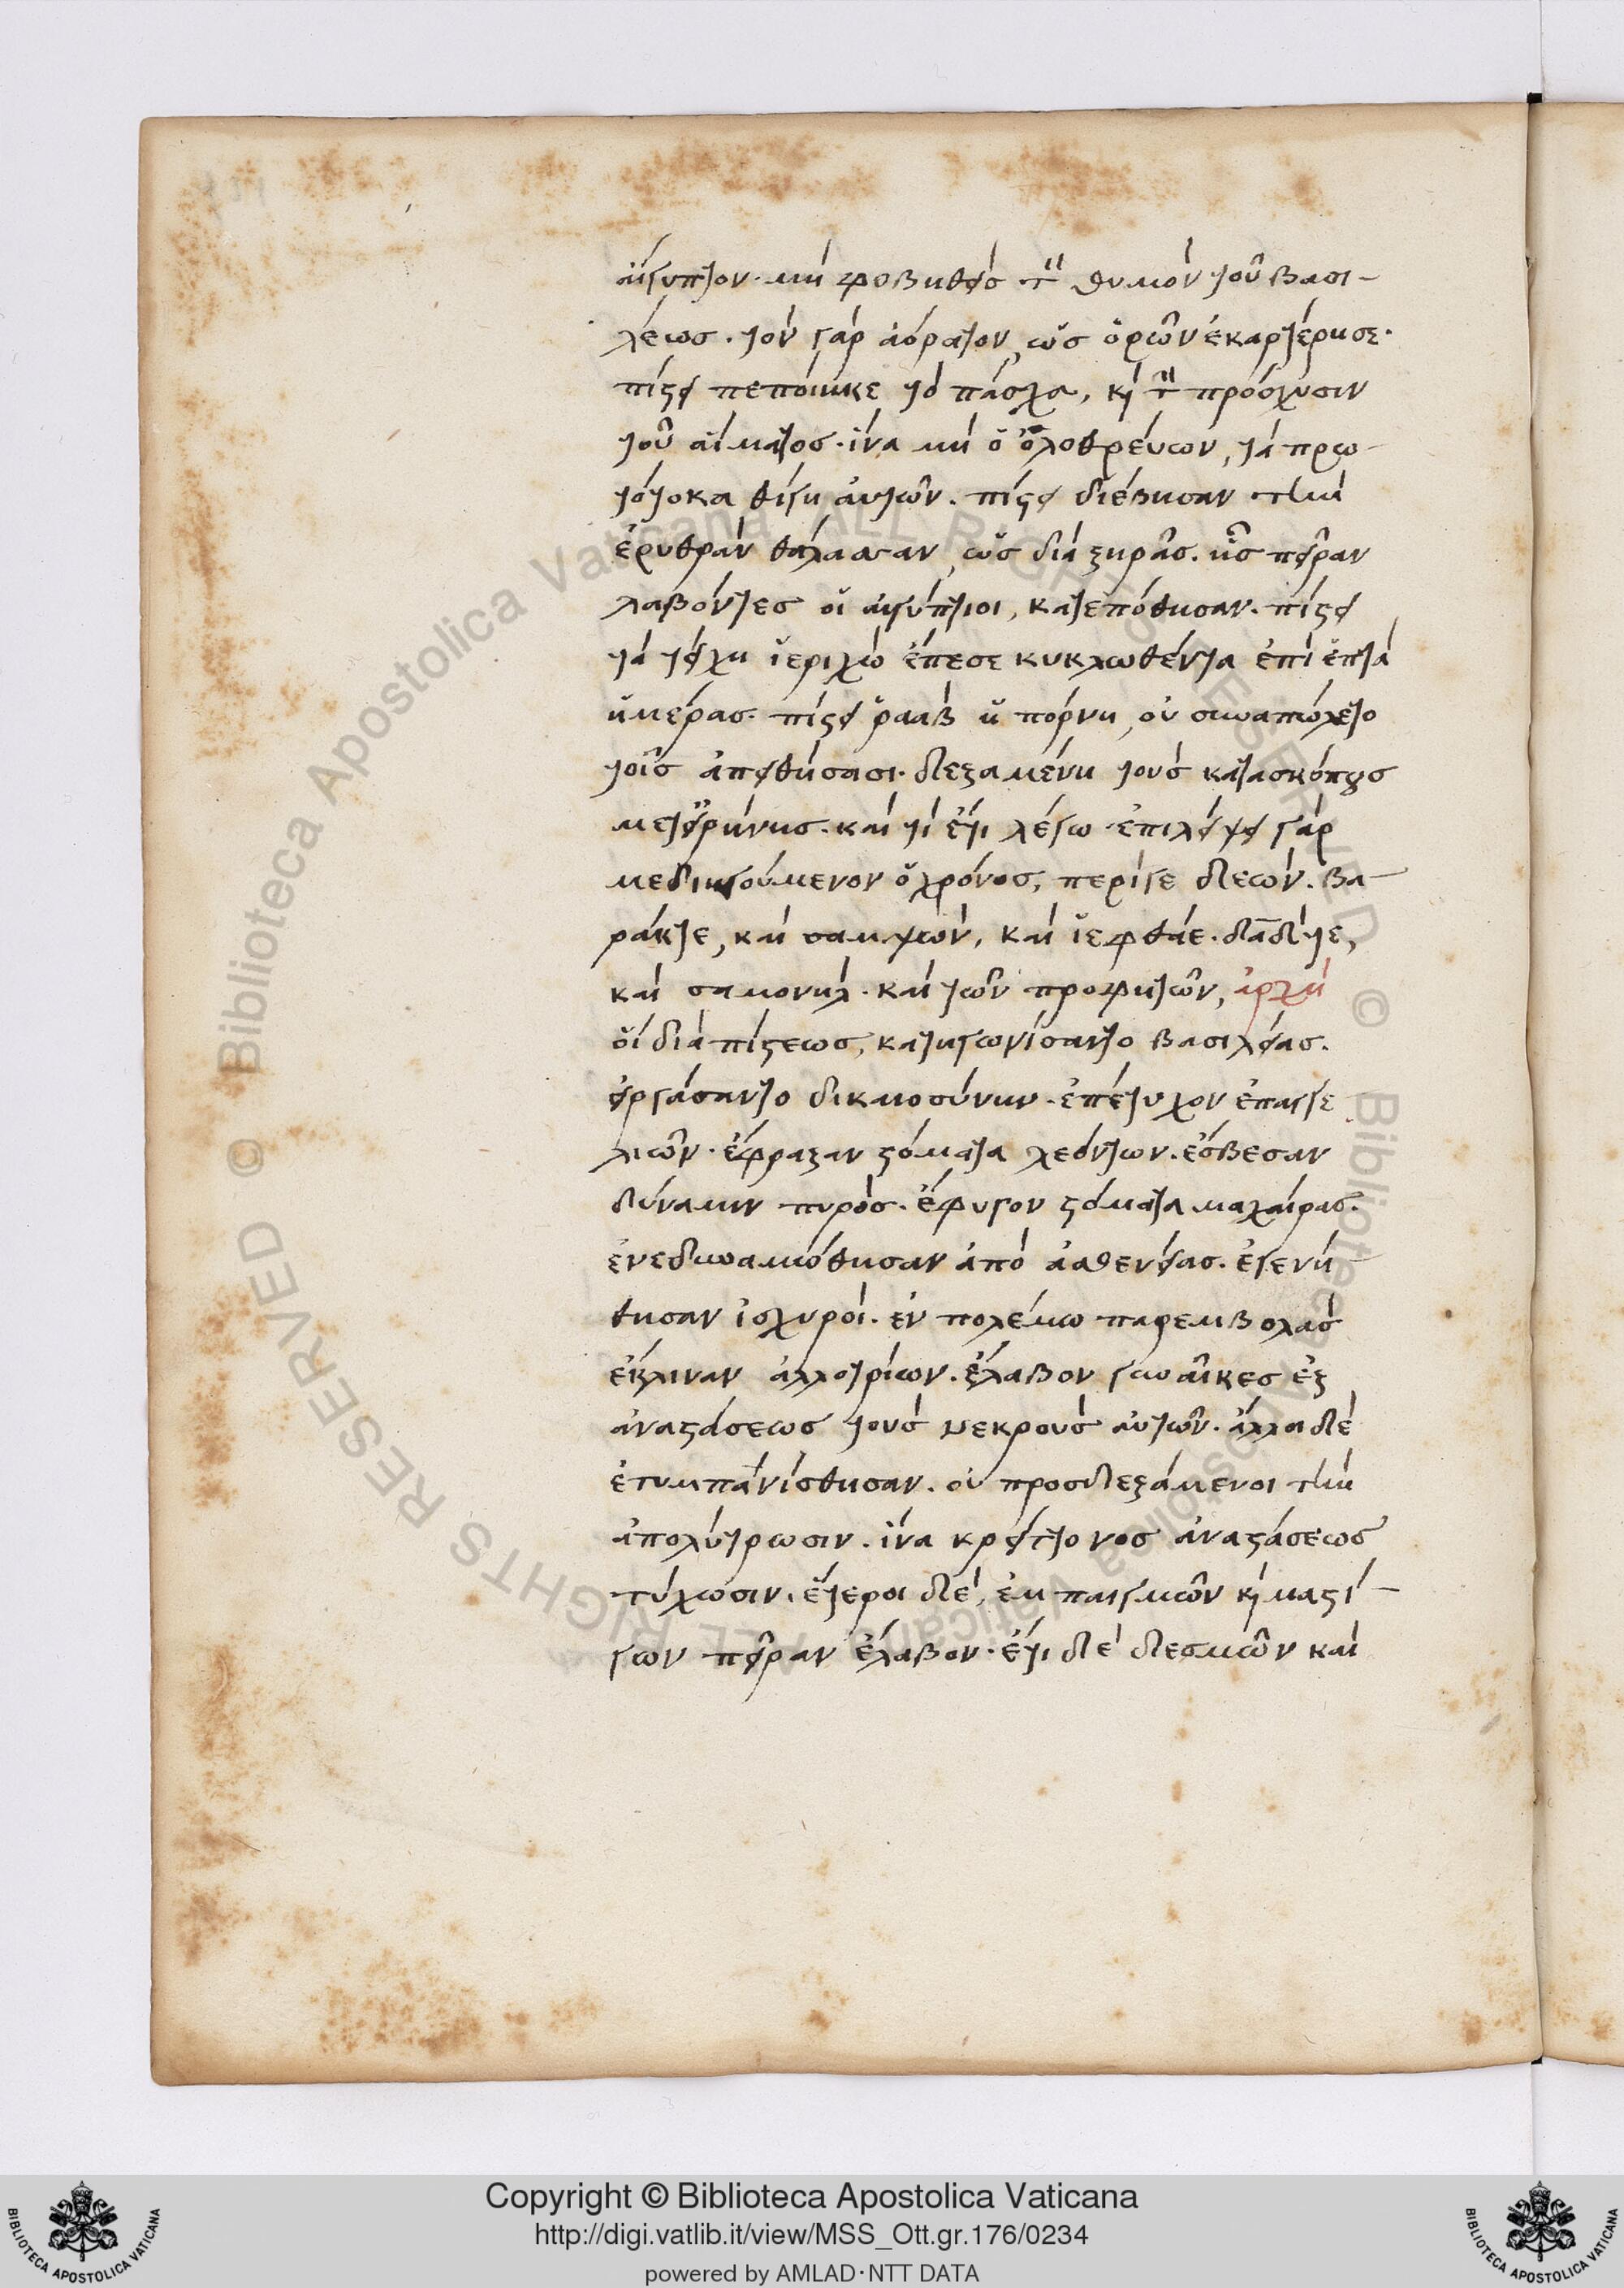 αἴγυπτον· μὴ φοβηθεὶς τὸν θυμὸν τοῦ βασι-
λέως. τὸν γὰρ ἀόρατον, ὡς ὁρῶν ἐκαρτέρησε·
πίστει πεποίηκε τὸ πάσχα, καὶ τὴν πρόσχυσιν
τοῦ αἵματος· ἵνα μὴ ὁ ὀλοθρεύων, τὰ πρω-
τότοκα θίγη αὐτῶν. πίστει διέβησαν τὴν
ἐρυθρὰν θάλασσαν, ὡς διὰ ξηρᾶς. ἧς πεῖραν
λαβόντες οἱ αἰγύπτιοι, κατεπόθησαν. πίστει
τὰ τείχη ἱεριχὼ ἔπεσε κυκλωθέντα ἐπὶ ἑπτὰ
ἡμέρας. πίστει ῥαὰβ ἡ πόρνη, οὐ συναπώλετο
τοῖς ἀπειθήσασι. δεξαμένη τοὺς κατασκόπους
μετ' εἰρήνης. καὶ τί ἔτι λέγω· ἐπιλείψει γάρ
με διηγούμενον ὁ χρόνος, περί γε δεών. βα-
ράκτε, καὶ σαμψών, καὶ ἰεφθάε. δᾱδίτε,
καὶ σαμουήλ. καὶ τῶν προφητῶν, ἀρχὴ
οἳ διὰ πίστεως, κατηγωνίσαντο βασιλείας.
εἰργάσαντο δικαιοσύνην. ἐπέτυχον ἐπαγγε
λιῶν. ἔφραξαν στόματα λεόντων. ἔσβεσαν
δύναμιν πυρός. ἔφυγον στόματα μαχαίρας.
ἐνεδυναμώθησαν ἀπὸ ἀσθενείας. ἐγενή-
θησαν ἰσχυροί. ἐν πολέμω παρεμβολὰς
ἔκλιναν ἀλλοτρίων. ἔλαβον γυναῖκες ἐξ
ἀναστάσεως τοὺς νεκροὺς αὐτῶν. ἄλλοι δὲ
ἐτυμπανίσθησαν. οὐ προσδεξάμενοι τὴν
ἀπολύτρωσιν. ἵνα κρείττονος ἀναστάσεως
τύχωσιν. ἕτεροι δέ, ἐμπαιγμῶν καὶ μαστί-
γων πεῖραν ἔλαβον. ἔτι δὲ δεσμῶν καὶ
Copyright © Biblioteca Apostolica Vaticana
http://digi.vatlib.it/view/MSS_Ott.gr.176/0234
powered by AMLAD·NTT DATA